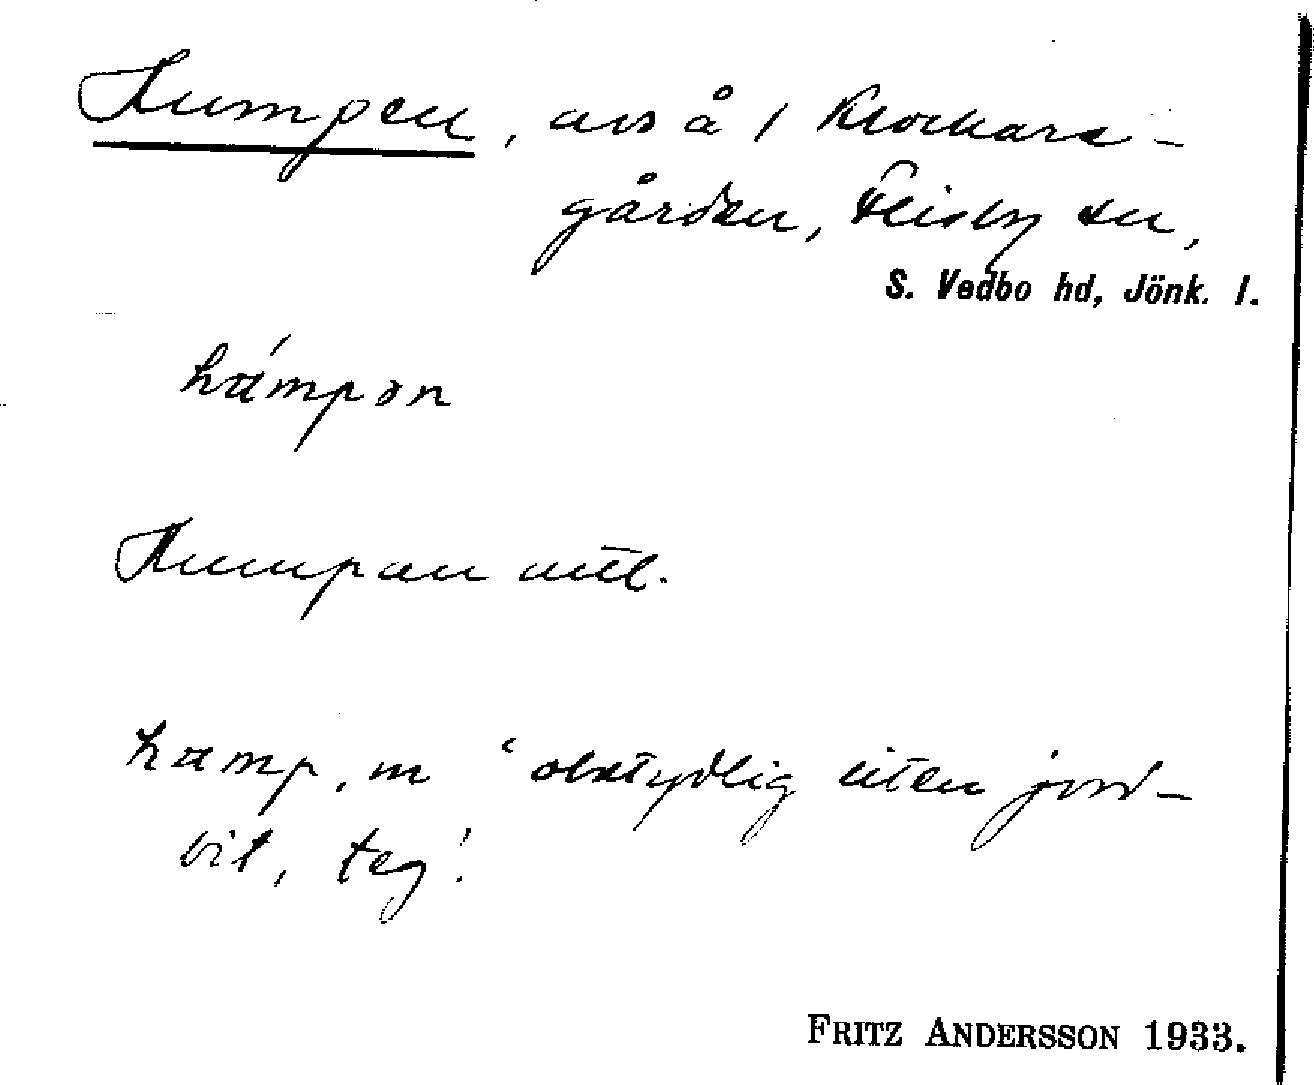 Humpen, avs å 1 Klockare-
gården, Flisby sn,
S. Vedbo hd, Jönk. l.
hámpən
Humpan
hamp, m 'obetydlig liten jord-
bit, teg'.
FRITZ ANDERSSON 1933.